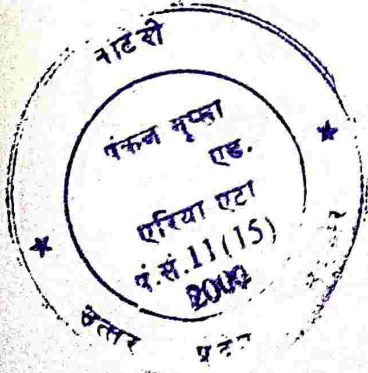 नोटरी
पंकज गुप्ता
एड.
एरिया एटा
पं.सं.11(15)
उत्तर प्रदेश